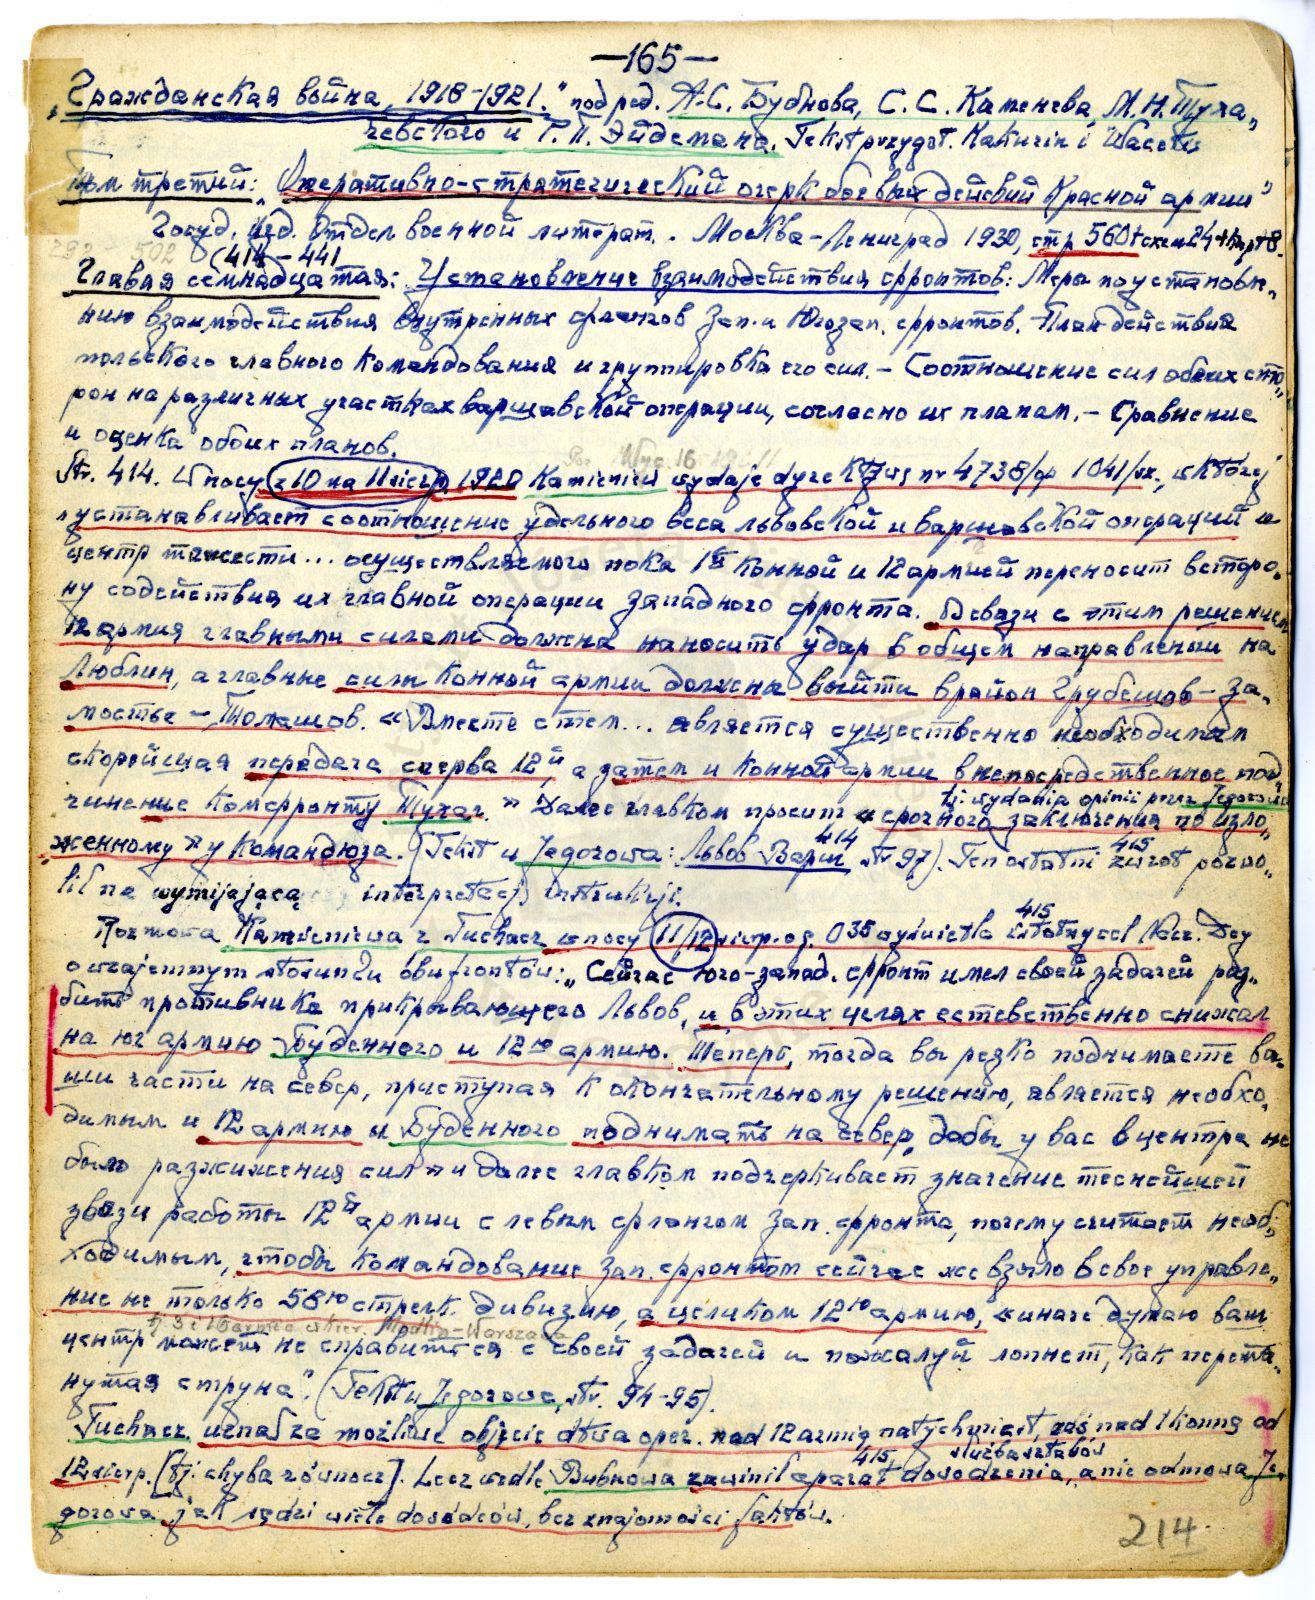 —165—
„Гражданская война, 1918–1921." под ред. А.С. Бубнова, С.С. Каменева, М.Н. Туха„
чевского и Р.П. Эйдемана. Tekst przygot. Kakurin i Wacetis
Том третий: „Оперативно-стратегический очерк боевых действий Красной армии"
Госуд. Изд. Отдел военной литерат. . Москва–Ленинград 1930, стр 560 + схем 24 + карт 8.
292 502 (414–441
Глава семнадцатая: Установление взаимодействия фронтов: Меры по установле„
нию взаимодействия внутренных флангов Зап. и Югозап. фронтов. – План действий
польского главного командования и группировка его сил. – Соотношение сил обеих сто„
рон на различных участках варшавской операции, согласно их планам. – Сравнение
и оценка обоих планов.
Str. 414. W nocy z 10 na 11 sierp. 1920 Kamieniew wydaje dyrektywę nr 4738/op 1041/ш., w której
„устанавливает соотношение удельного веса львовской и варшавской операций и
центр тяжести... осуществляемого пока 1й Конной и 12 армией переносит в сторо„
ну содействия их главной операции Западного фронта. В связи с этим решением
12 армия главными силами должна наносить удар в общем направлении на
Люблин, а главные силы Конной армии должны выйти в район Грубешов – За„
мостье – Томашов. «Вместе с тем... является существенно необходимым
скорейшая передача сперва 12й, а затем и Конной армии в непосредственное под„
чинение Комфронту Тухач.» Далее главком просит «срочного заключения по изло„
tj. wydania opinii przez Jegorowa
„женному» у Командюза. (Tekst u Jegorowa: Львов Варш str 97). Ten ostatni zwrot pozwo„
414 415
lił na wymijającą interpretację instrukcji.
Rozmowa Kamieniewa z Tuchacz. w nocy 11/12 sierp. o g. 0 35 wyjaśniła istotną cel Nacz. Dow
415
o wzajemnym stosunku obu frontów: „Сейчас юго-запад. фронт имел своей задачей раз„
бить противника прикрывающего Львов, и в этих целях естевственно снижал
на юг армию Буденного и 12ю армию. Теперь, тогда вы резко поднимаете ва„
ши части на север, приступая к окончательному решению, является необхо„
димым и 12 армию и Буденного поднимать на север, дабы у вас в центре не
было разжижения сил» и далее главком подчеркивает значение теснейшей
звязи работы 12й армии с левым флангом Зап. фронта, почему считает необ„
ходимым, чтобы командование Зап. фронтом сейчас же взяло в свое управле„
ние не только 58ю стрелк. дивизию, а целиком 12ю армию, «иначе думаю ваш
tj. 3 i 16 armia Modlin–Warszawa
центр может не справиться с своей задачей и пожалуй лопнет, как перетя„
нутая струна". (Tekst u Jegorowa, str. 94-95).
Tuchacz. uznał za możliwe objęcie dtwa oper. nad 12 armią natychmiast, zaś nad 1 konną od
415 służba sztabów
12 sierp. [tj. chyba równocz]. Lecz wedle Bubnowa zawinił aparat dowodzenia, a nie odmowa Je„
gorowa, jak sądzi wiele dowódców, bez znajomości faktów.
214